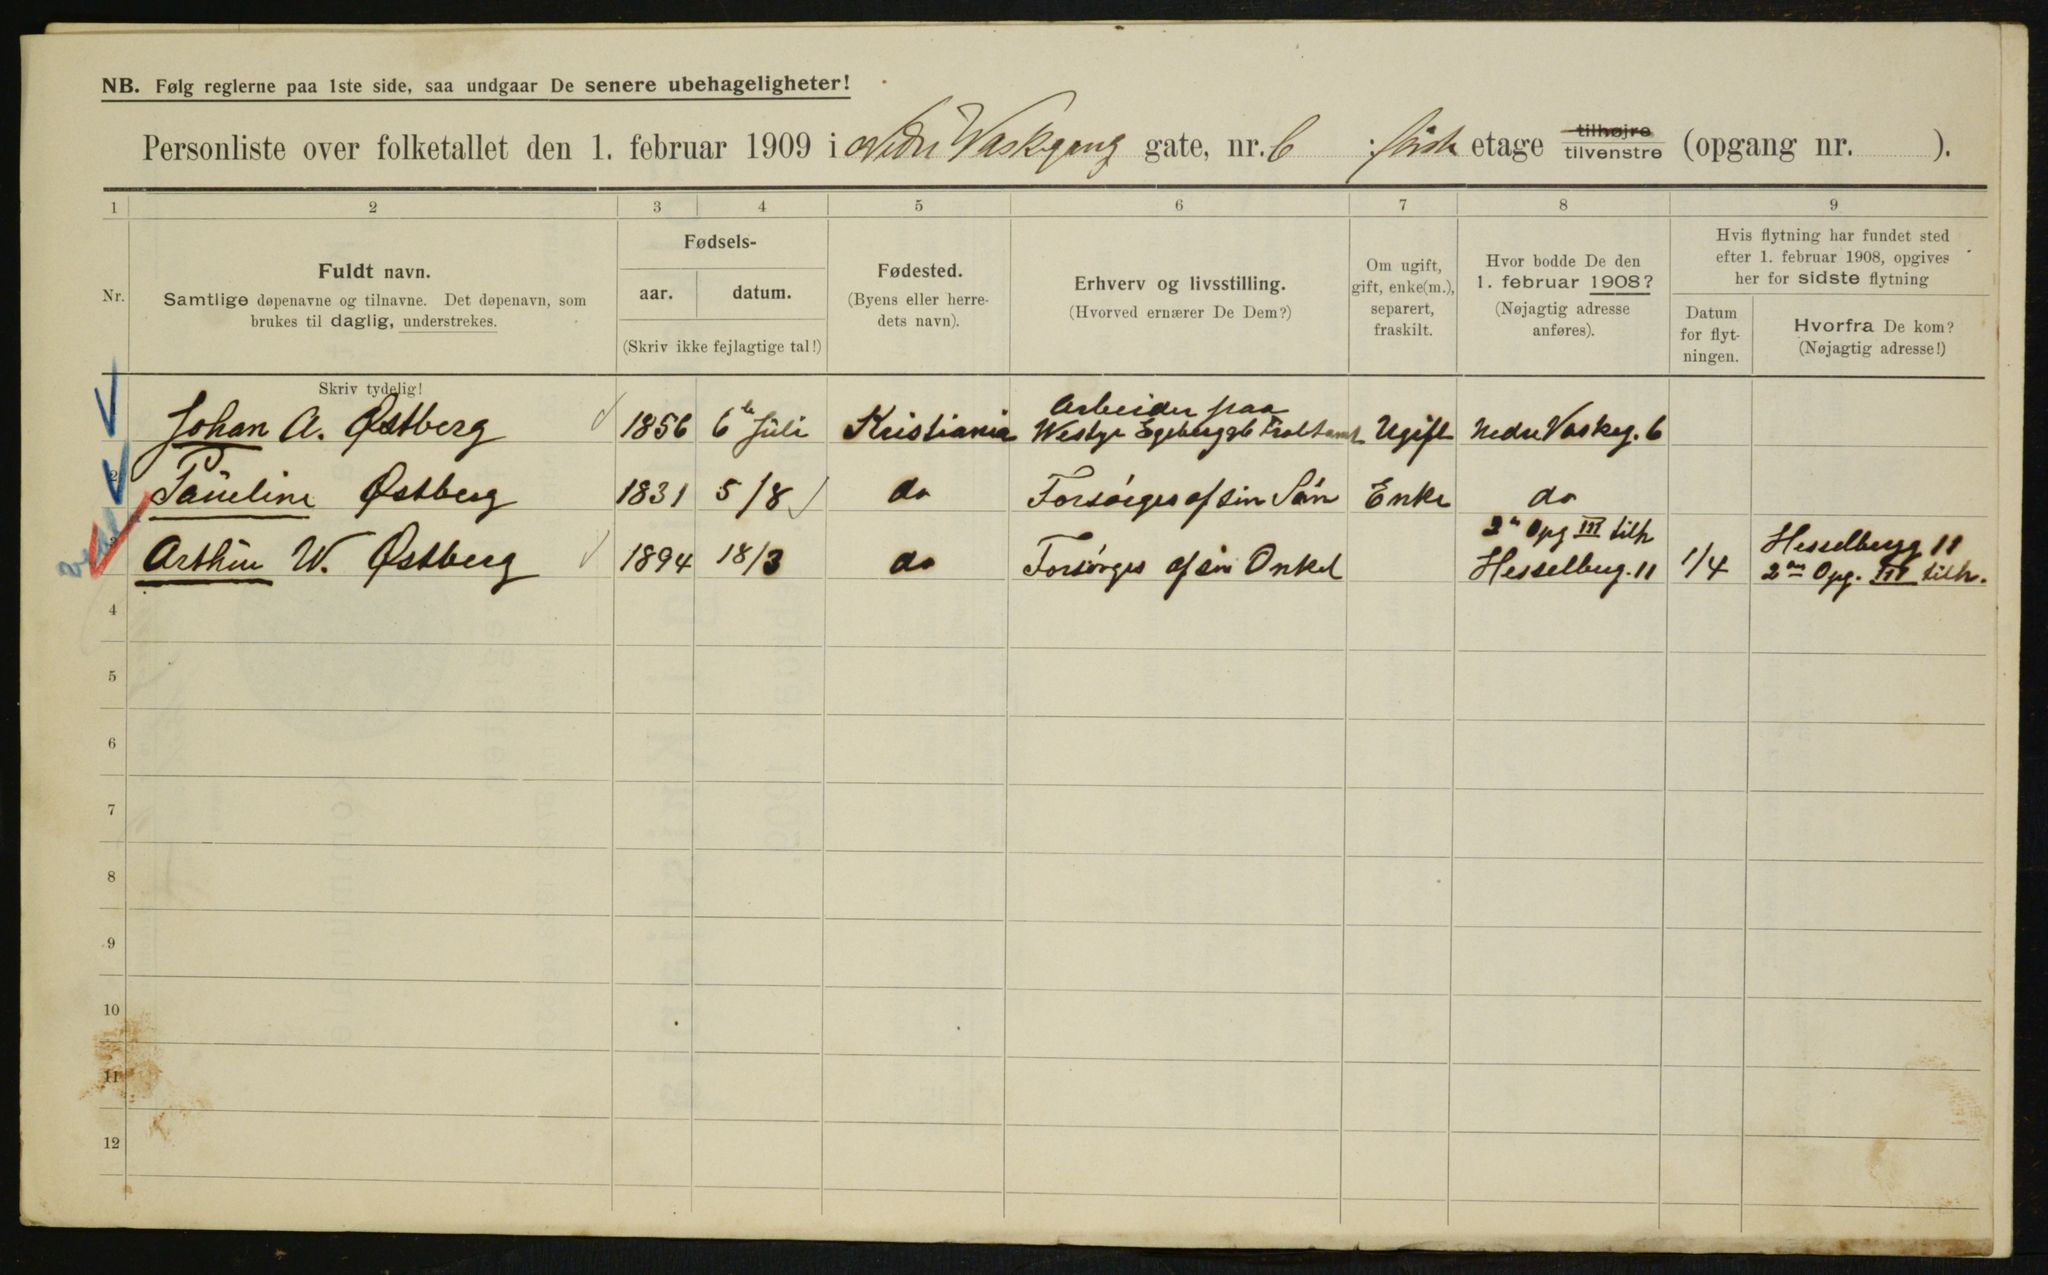 NB. Følg reglerne paa 1ste side, saa undgaar De senere ubehageligheter!
Personliste over folketallet den 1. februar 1909 i Nedre Vaskegang gate, nr. 6 : første etage tilhøjre tilvenstre (opgang nr. ).
1 2 3 4 5 6 7 8 9
Nr.
Fuldt navn.
Samtlige døpenavne og tilnavne. Det døpenavn, som
brukes til daglig, understrekes.
Skriv tydelig!
Fødsels-
aar. datum.
(Skriv ikke fejlagtige tal!)
Fødested.
(Byens eller herre-
dets navn).
Erhverv og livsstilling.
(Hvorved ernærer De Dem?)
Om ugift,
gift, enke(m.),
separert,
fraskilt.
Hvor bodde De den
1. februar 1908?
(Nøjagtig adresse
anføres).
Hvis flytning har fundet sted
efter 1. februar 1908, opgives
her for sidste flytning
Datum
for flyt-
ningen.
Hvorfra De kom?
(Nøjagtig adresse!)
Johan A. Østberg 1856 6te Juli Kristiania Arbeider paa
Westye Egeberg Ugift Nedre Vaskeg. 6
2 Pauline Østberg 1831 5/8 do Forsørges af sin Søn Enke do
3 Arthur W. Østberg 1894 18/3 do Forsørges af sin Onkel 2n Opg III tilh
Hesselberg. 11 1/4 Hesselbergg 11
2den Opg. III tilh.
4
5
6
7
8
9
10
11
12